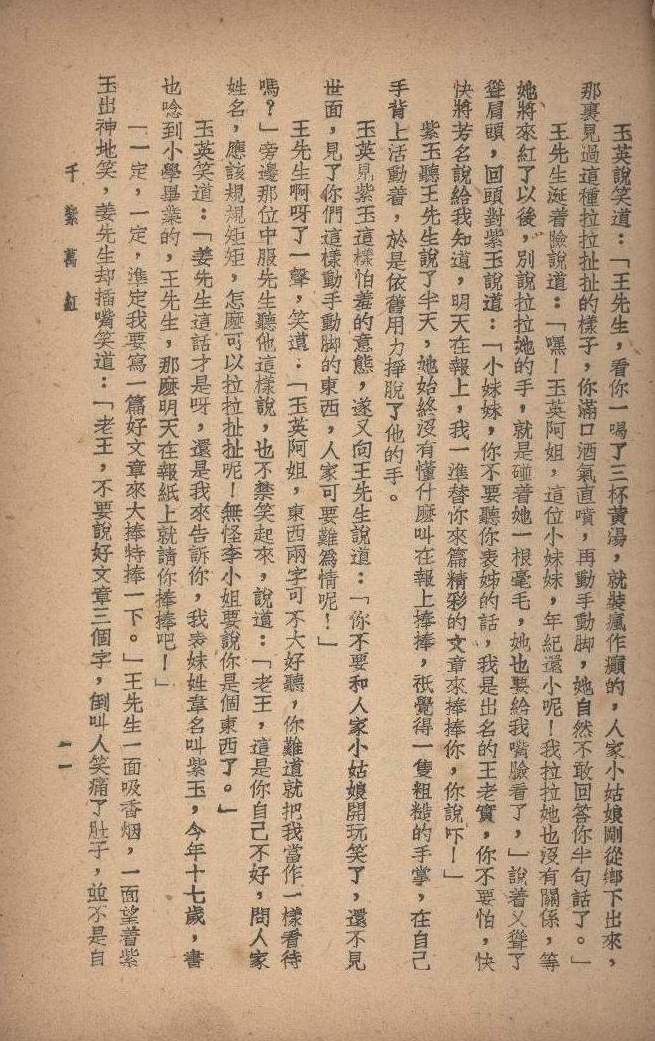 玉英說笑道：「王先生，看你一喝了三杯黃湯，就裝瘋作癲的，人家小姑娘剛從鄉下出來，
那裏見過這種拉拉扯扯的樣子，你滿口酒氣直噴，再動手動脚，她自然不敢回答你半句話了。」
王先生涎着臉說道：「嘿！玉英阿姐，這位小妹妹，年紀還小呢！我拉拉她也沒有關係，等
她將來紅了以後，別說拉拉她的手，就是碰着她一根毫毛，她也要給我嘴臉看了，」說着又聳了
聳肩頭，回頭對紫玉說道：「小妹妹，你不要聽你表姊的話，我是出名的王老實，你不要怕，快
快將芳名說給我知道，明天在報上，我一準替你來篇精彩的文章來捧捧你，你說吓！」
紫玉聽王先生說了半天，她始終沒有懂什麼叫在報上捧捧，祇覺得一隻粗糙的手掌，在自己
手背上活動着，於是依舊用力掙脫了他的手。
玉英見紫玉這樣怕羞的意態，遂又向王先生說道：「你不要和人家小姑娘開玩笑了，還不見
世面，見了你們這樣動手動脚的東西，人家可要難爲情呢！」
王先生啊呀了一聲，笑道：「玉英阿姐，東西兩字可不大好聽，你難道就把我當作一樣看待
嗎？」旁邊那位中服先生聽他這樣說，也不禁笑起來，說道：「老王，這是你自己不好，問人家
姓名，應該規規矩矩，怎麼可以拉拉扯扯呢！無怪李小姐要說你是個東西了。」
玉英笑道：「姜先生這話才是呀，還是我來告訴你，我表妹姓韋名叫紫玉，今年十七歲，書
也唸到小學畢業的，王先生，那麼明天在報紙上就請你捧捧吧！」
「一定，一定，準定我要寫一篇好文章來大捧特捧一下。」王先生一面吸香烟，一面望着紫
玉出神地笑，姜先生却插嘴笑道：「老王，不要說好文章三個字，倒叫人笑痛了肚子，並不是自
千紫萬紅
一一